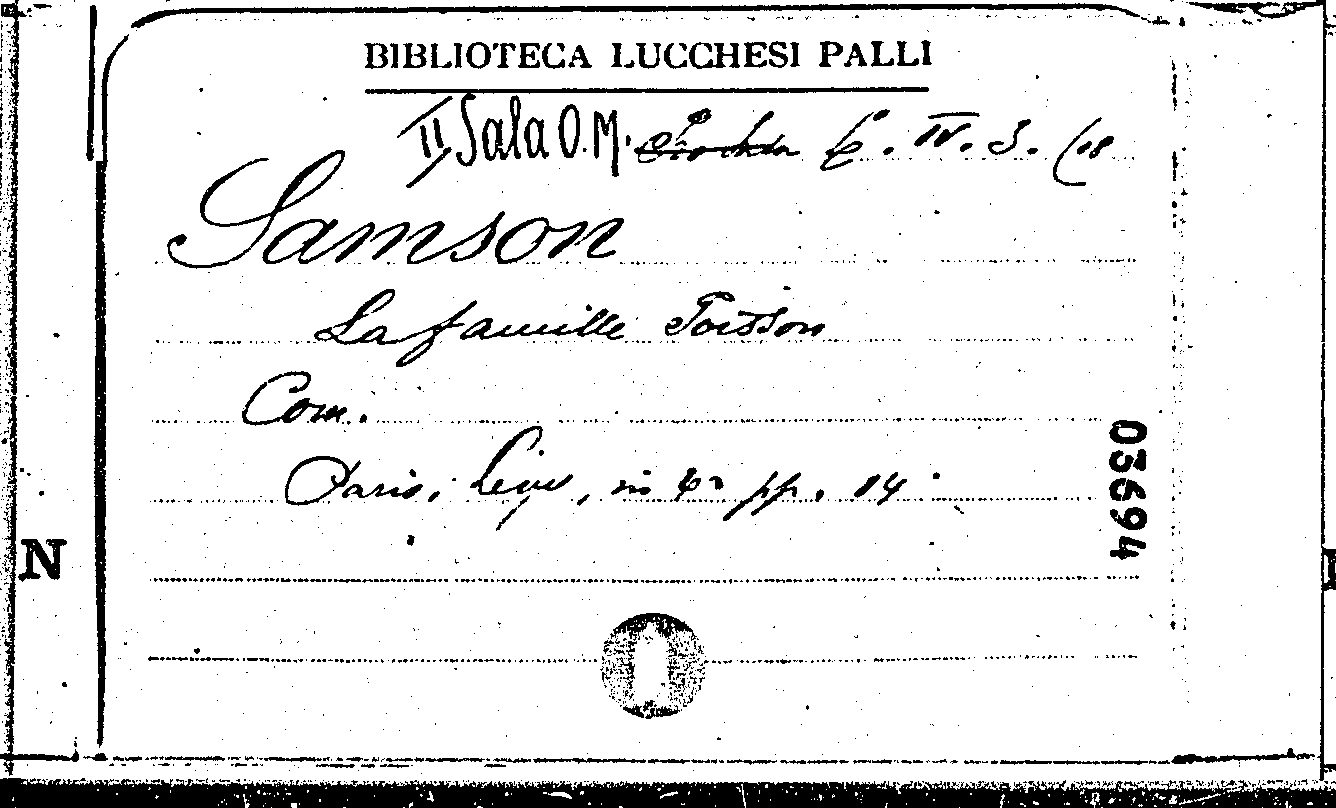 BIBLIOTECA LUCCHESI PALLI
II Sala O.M. C. IV. 3. (18
Samson
La famille Poisson
Com.
Paris, Levy, in 4º pp. 14
03694
N